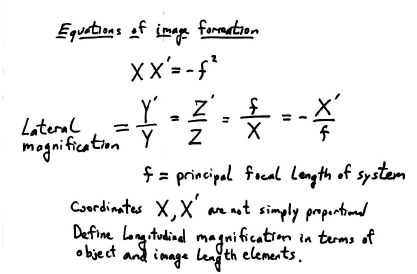 Equations of image formation
X X' = -f²
Lateral magnification = Y'/Y = Z'/Z = f/X = - X'/f
f = principal focal length of system
Coordinates X, X' are not simply proportional
Define longitudinal magnification in terms of
object and image length elements.